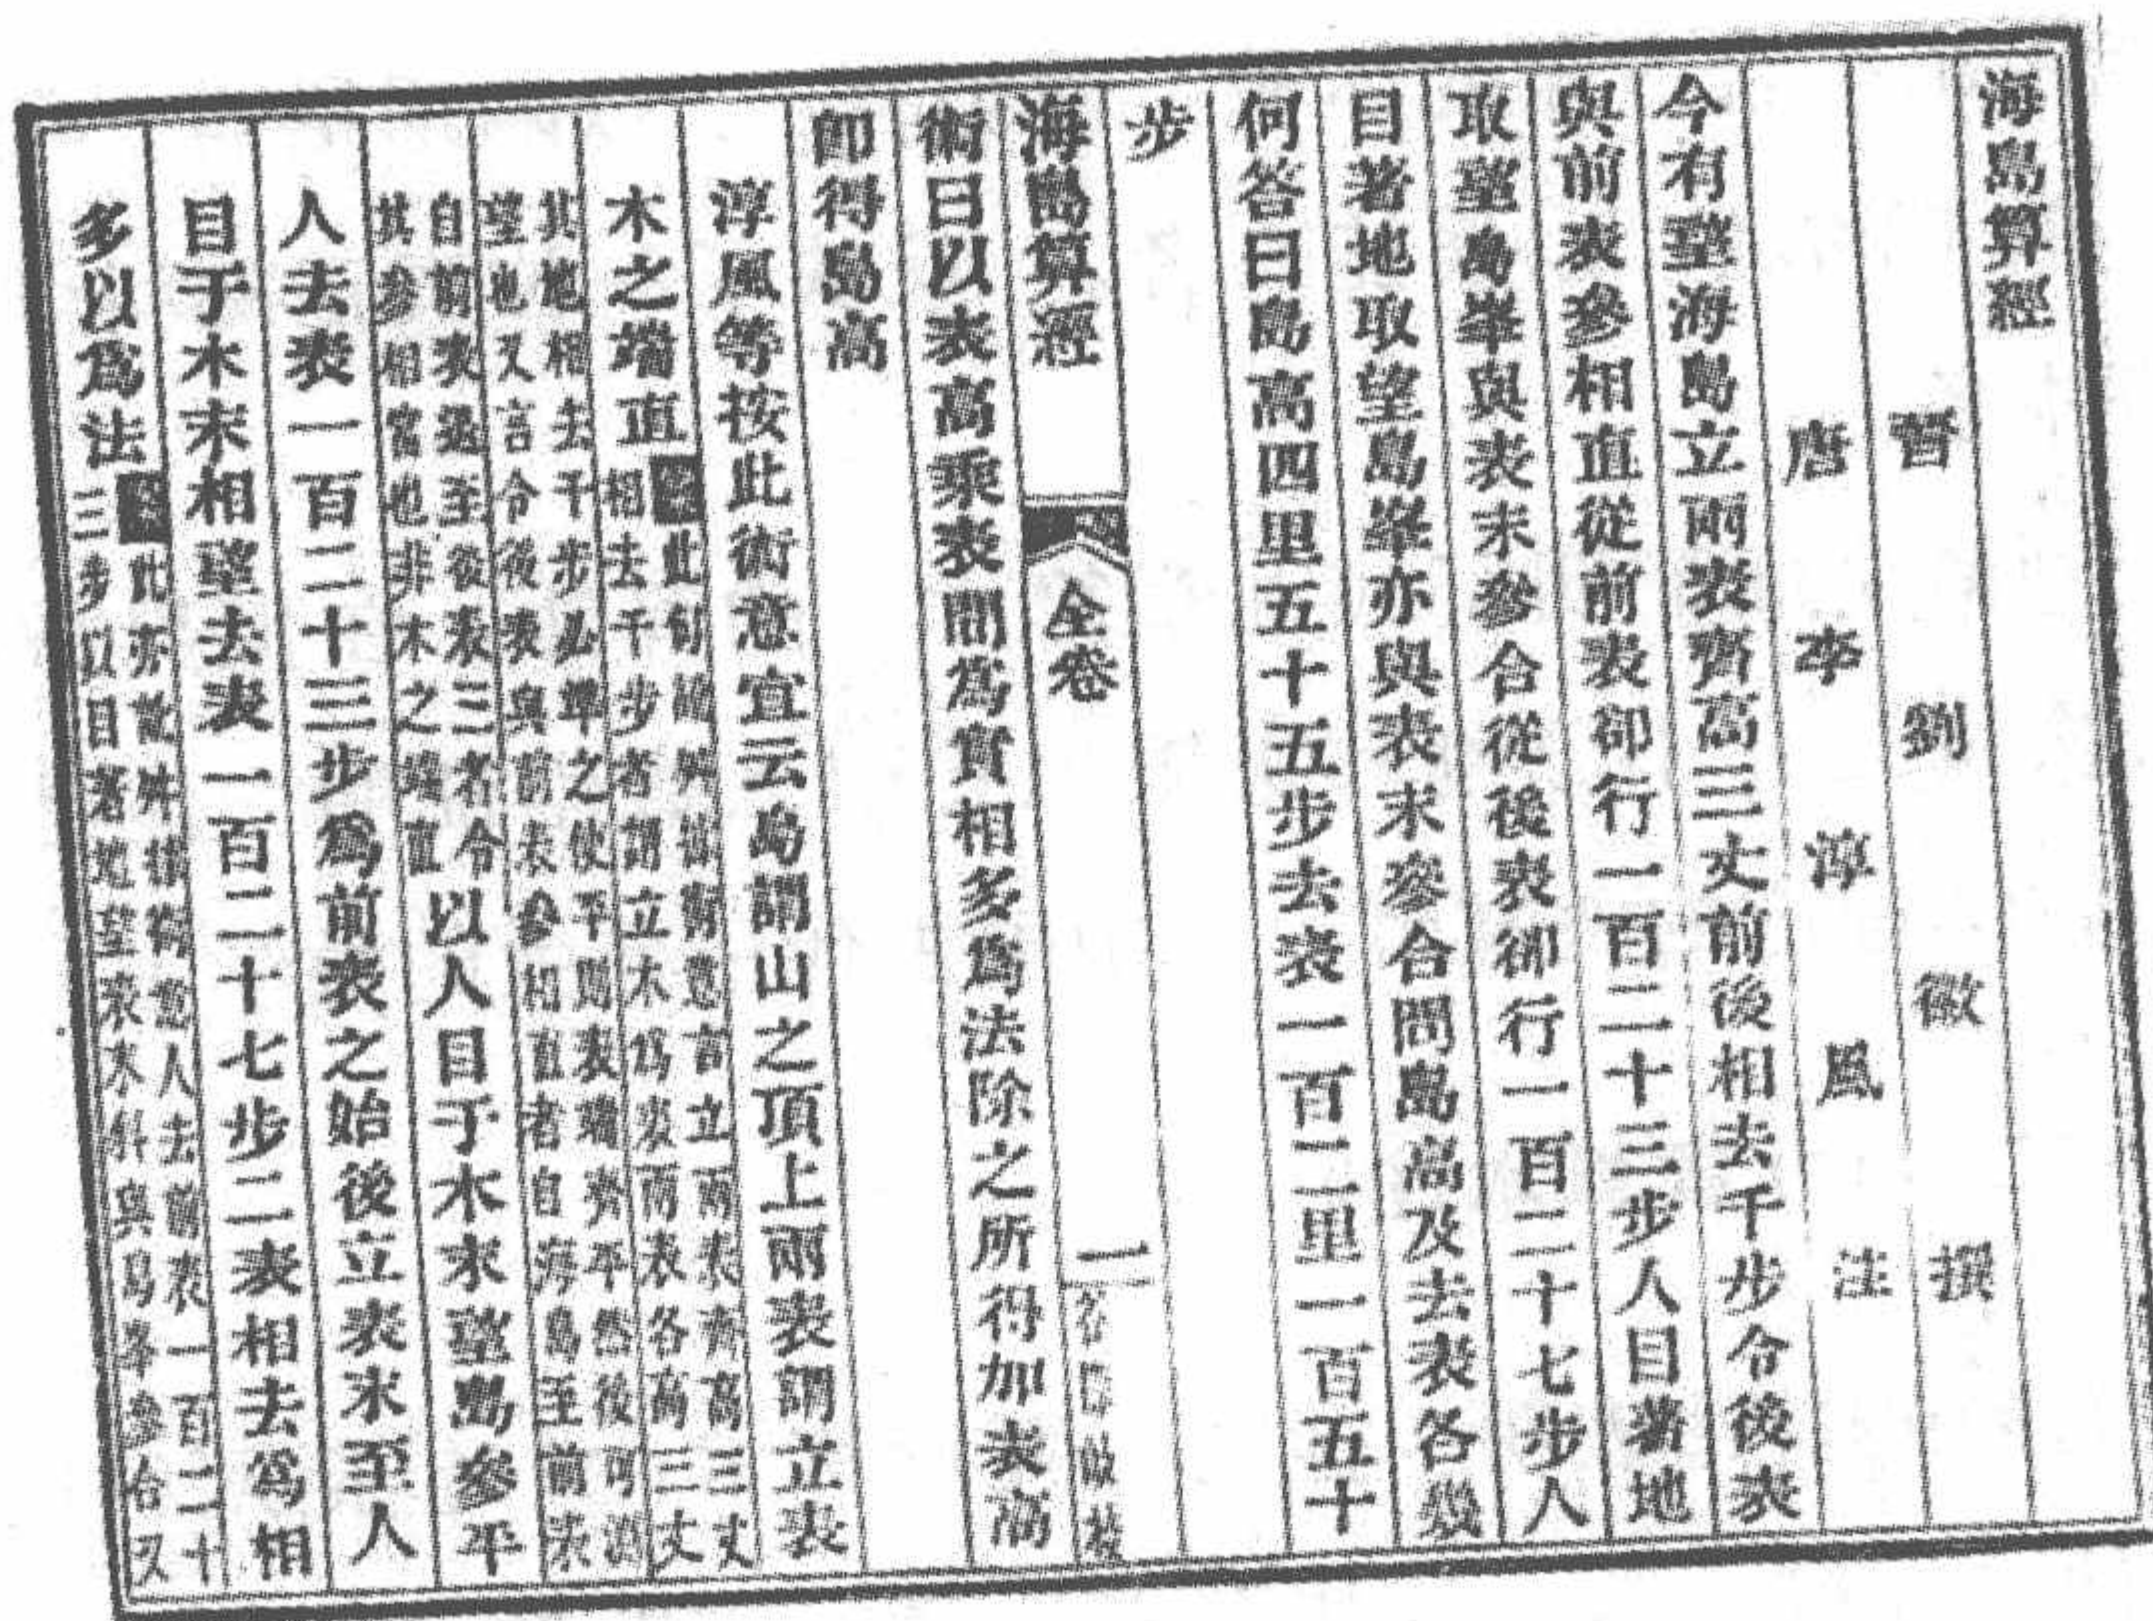 海島算經
晉劉徽撰
唐李淳風注
今有望海島立兩表齊高三丈前後相去千步令後表
與前表參相直從前表卻行一百二十三步人目著地
取望島峯與表末參合從後表卻行一百二十七步人
目著地取望島峯亦與表末參合問島高及去表各幾
何答曰島高四里五十五步去表一百二里一百五十
步
海島算經 全卷 一
術曰以表高乘表間爲實相多爲法除之所得加表高
卽得島高
淳風等按此術意宜云島謂山之頂上兩表謂立表
木之端直
此句
術意言立兩表齊高三丈
相去千步者謂立木爲表兩表各高三丈
其地相去千步必準之使平則表端齊平然後可
望也又言令後表與前表參相直者自海島至前表
自前表退至後表三者令
其參相當也非木之端直
以人目于木末望島參平
人去表一百二十三步爲前表之始後立表末至人
目于木末相望去表一百二十七步二表相去爲相
多以爲法
此亦
術意人去前表一百二十
三步以目著地望表木斜與島峯參合又